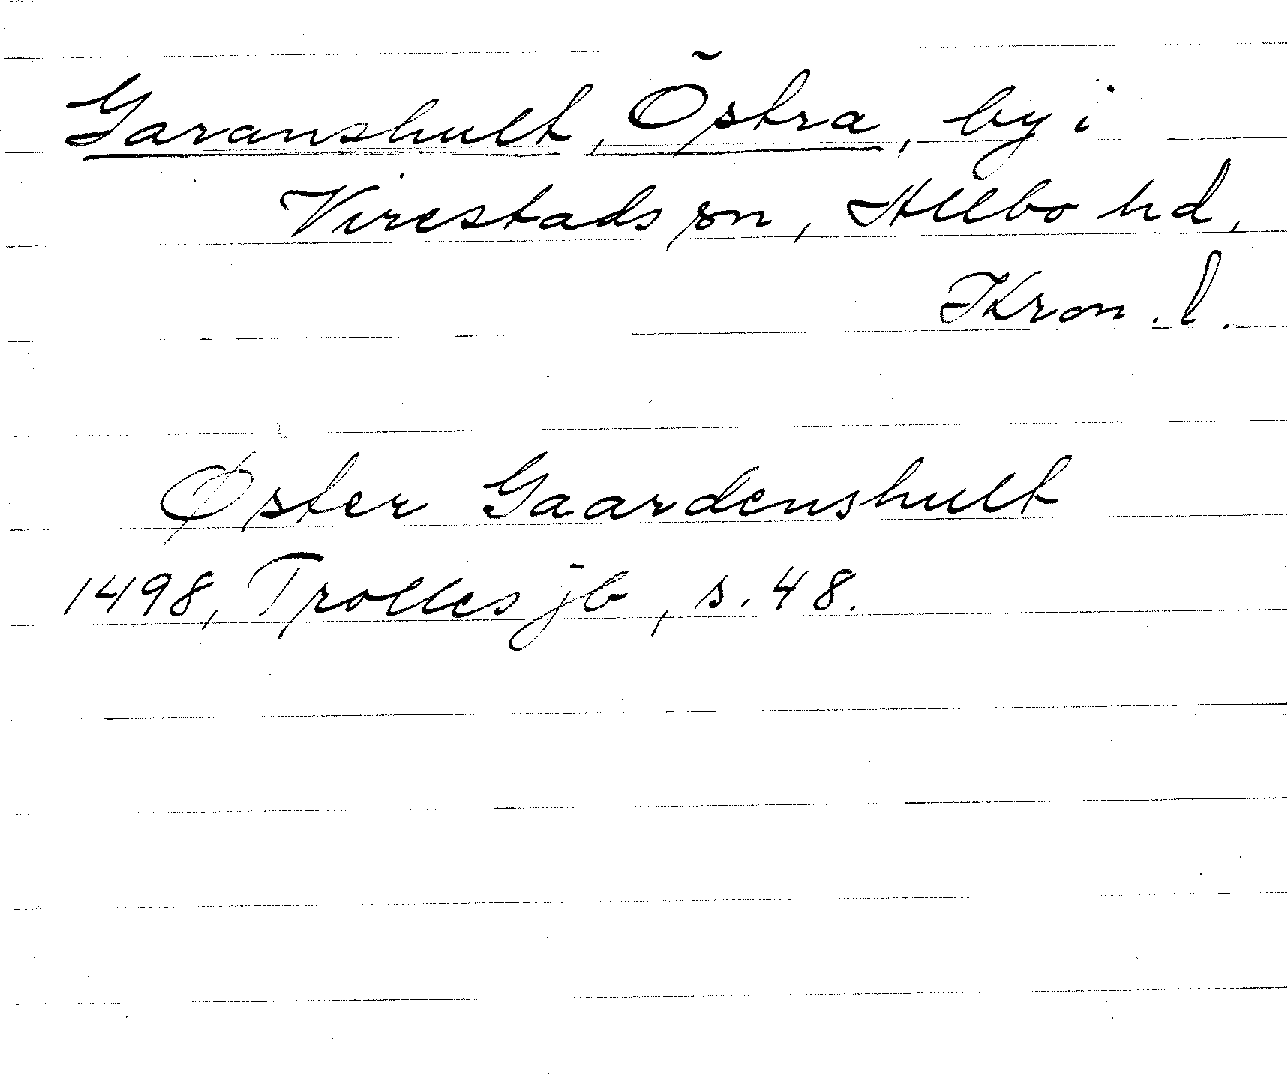 Garanshult, Östra, by i
Virestads sn, Allbo hd,
Kron. l.
Øster Gaardenshult
1498, Trolles jb, s. 48.